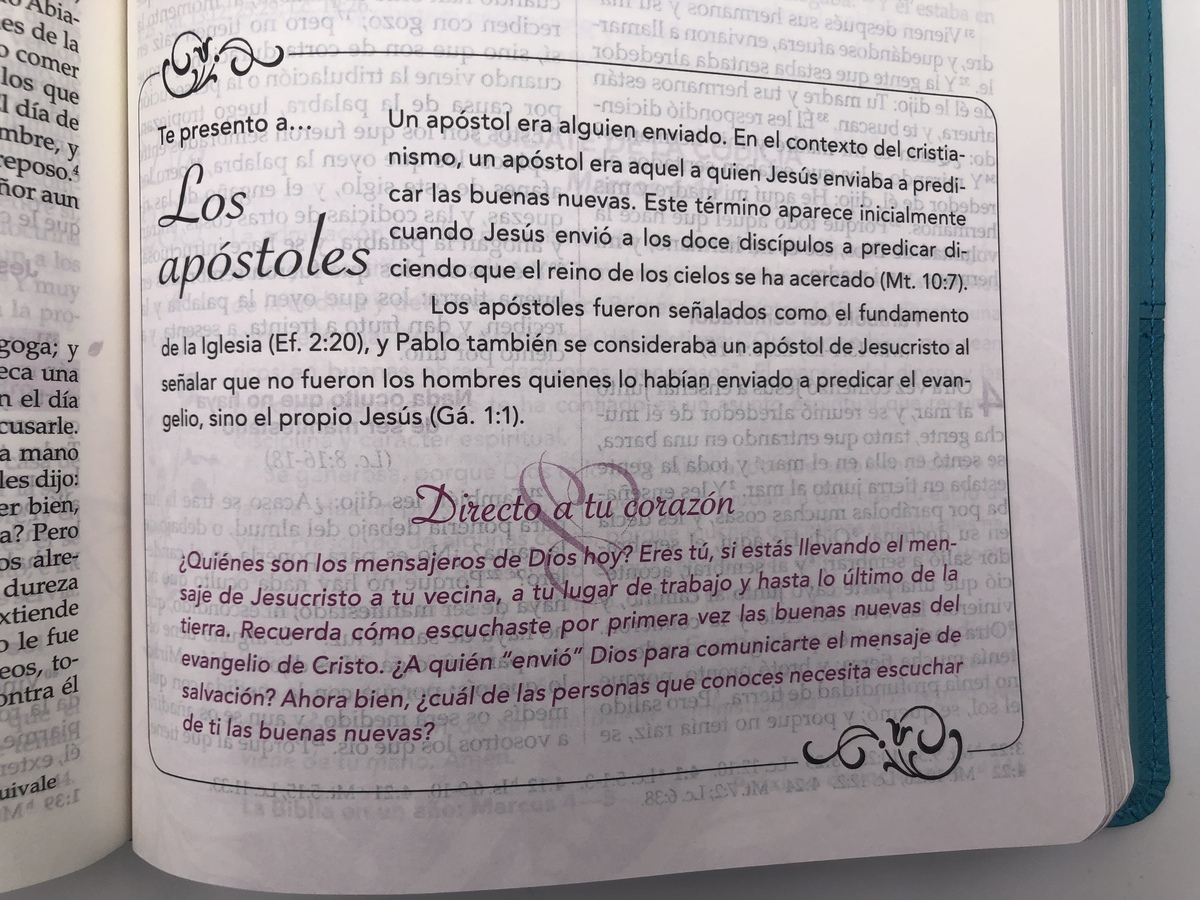 Abia-
es de la
o comer
los que
l día de
mbre, y
reposo.⁴
ñor aun
goga; y
eca una
n el día
cusarle.
a mano
les dijo:
er bien,
a? Pero
os alre-
dureza
xtiende
o le fue
eos, to-
ontra él
uivale
Te presento a...
Los
apóstoles
Un apóstol era alguien enviado. En el contexto del cristia-
nismo, un apóstol era aquel a quien Jesús enviaba a predi-
car las buenas nuevas. Este término aparece inicialmente
cuando Jesús envió a los doce discípulos a predicar di-
ciendo que el reino de los cielos se ha acercado (Mt. 10:7).
Los apóstoles fueron señalados como el fundamento
de la Iglesia (Ef. 2:20), y Pablo también se consideraba un apóstol de Jesucristo al
señalar que no fueron los hombres quienes lo habían enviado a predicar el evan-
gelio, sino el propio Jesús (Gá. 1:1).
Directo a tu corazón
¿Quiénes son los mensajeros de Dios hoy? Eres tú, si estás llevando el men-
saje de Jesucristo a tu vecina, a tu lugar de trabajo y hasta lo último de la
tierra. Recuerda cómo escuchaste por primera vez las buenas nuevas del
evangelio de Cristo. ¿A quién “envió” Dios para comunicarte el mensaje de
salvación? Ahora bien, ¿cuál de las personas que conoces necesita escuchar
de ti las buenas nuevas?